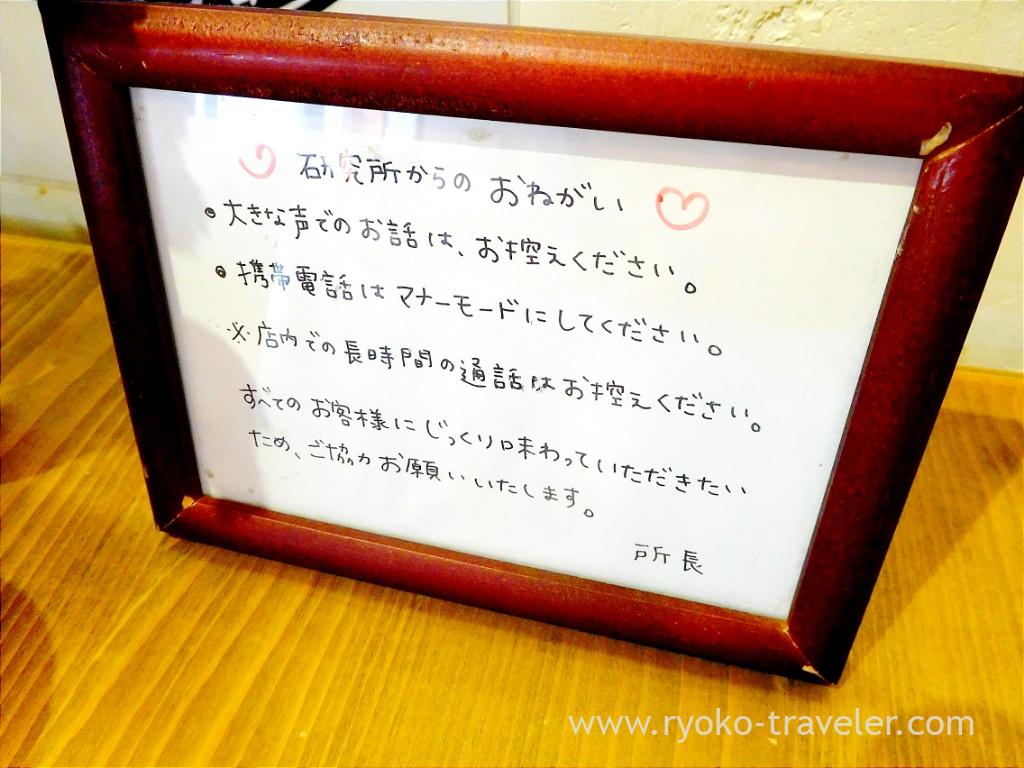 研究所からの おねがい
• 大きな声でのお話は、お控えください。
• 携帯電話はマナーモードにしてください。
※店内での長時間の通話はお控えください。
すべてのお客様にじっくり味わっていただきたい
ため、ご協力お願いいたします。
所長
www.ryoko-traveler.com